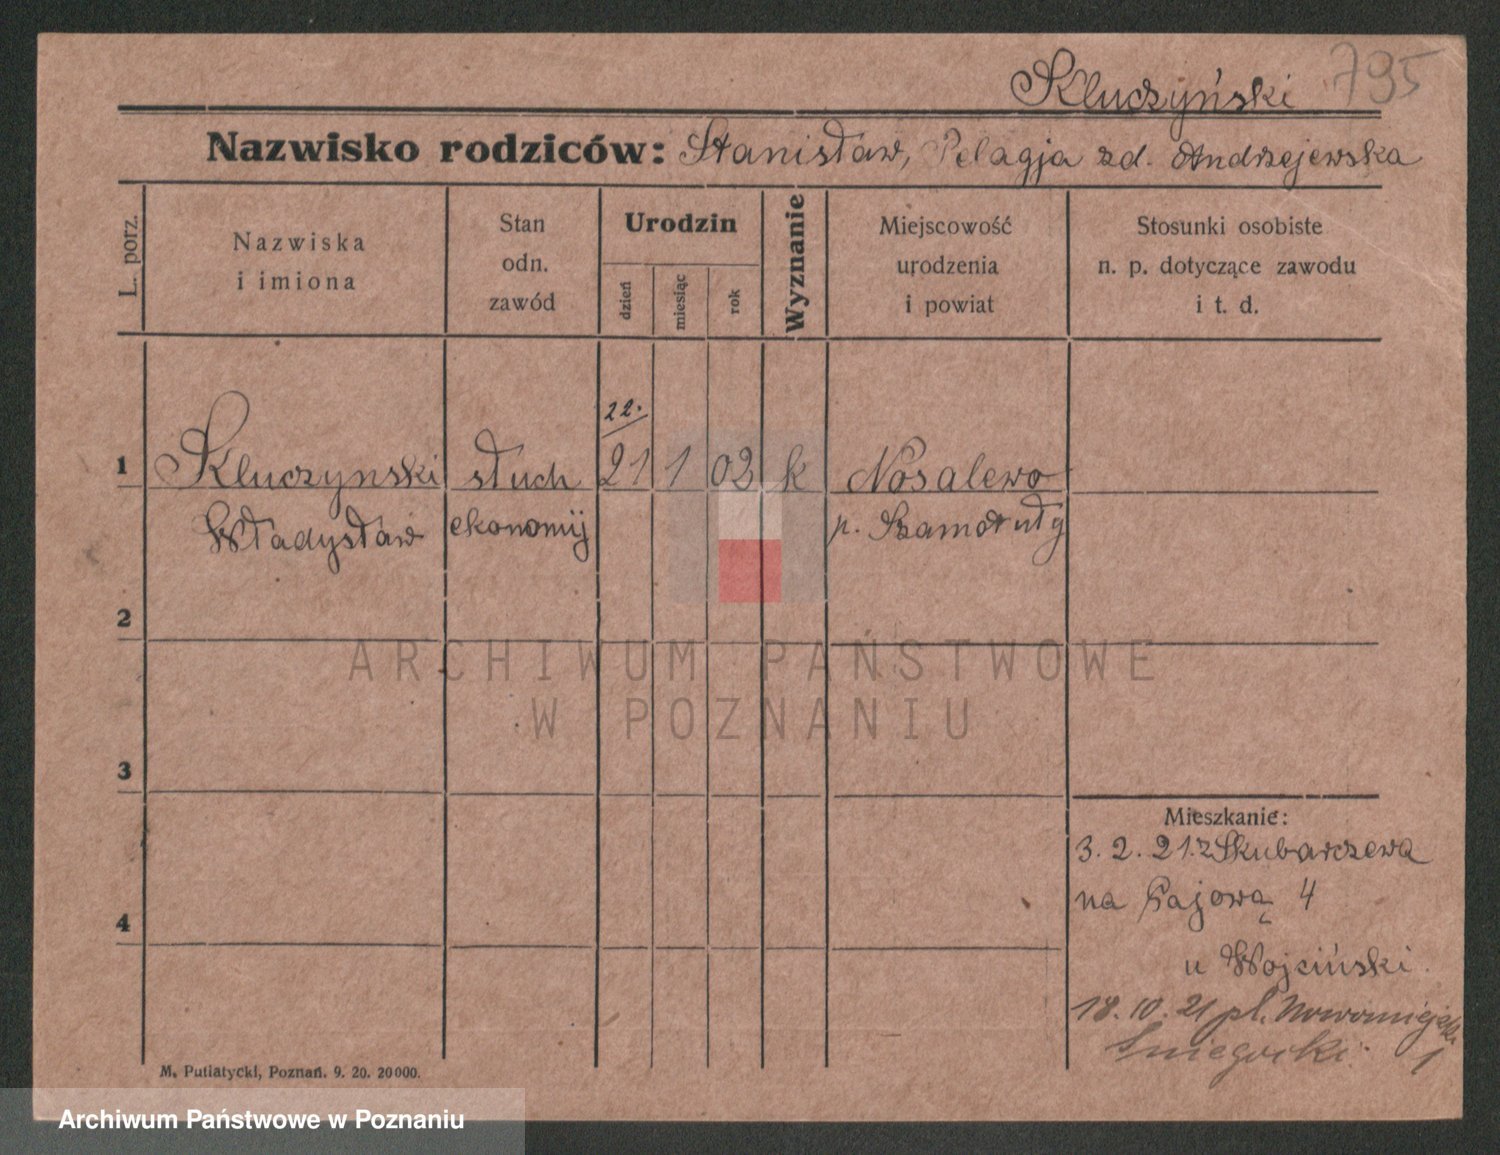 Kluczyński 795
Nazwisko rodziców: Stanisław, Pelagja zd. Andrzejewska
L. porz.
Nazwiska
i imiona
Stan
odn.
zawód
Urodzin
dzień
miesiąc
rok
Wyznanie
Miejscowość
urodzenia
i powiat
Stosunki osobiste
n. p. dotyczące zawodu
i t. d.
22.
1 Kluczynski słuch 21 1 02 k Nosalewo
Władysław ekonomij p. Szamotuły
2
3
4
Mieszkanie:
3. 2. 21. z Skubarczewa
na Gajową 4
u Wojciński.
18. 10. 21 pl. Nowomiejski 1
Śniegocki.
M. Putiatycki, Poznań. 9. 20. 20000.
ARCHIWUM PAŃSTWOWE
W POZNANIU
Archiwum Państwowe w Poznaniu